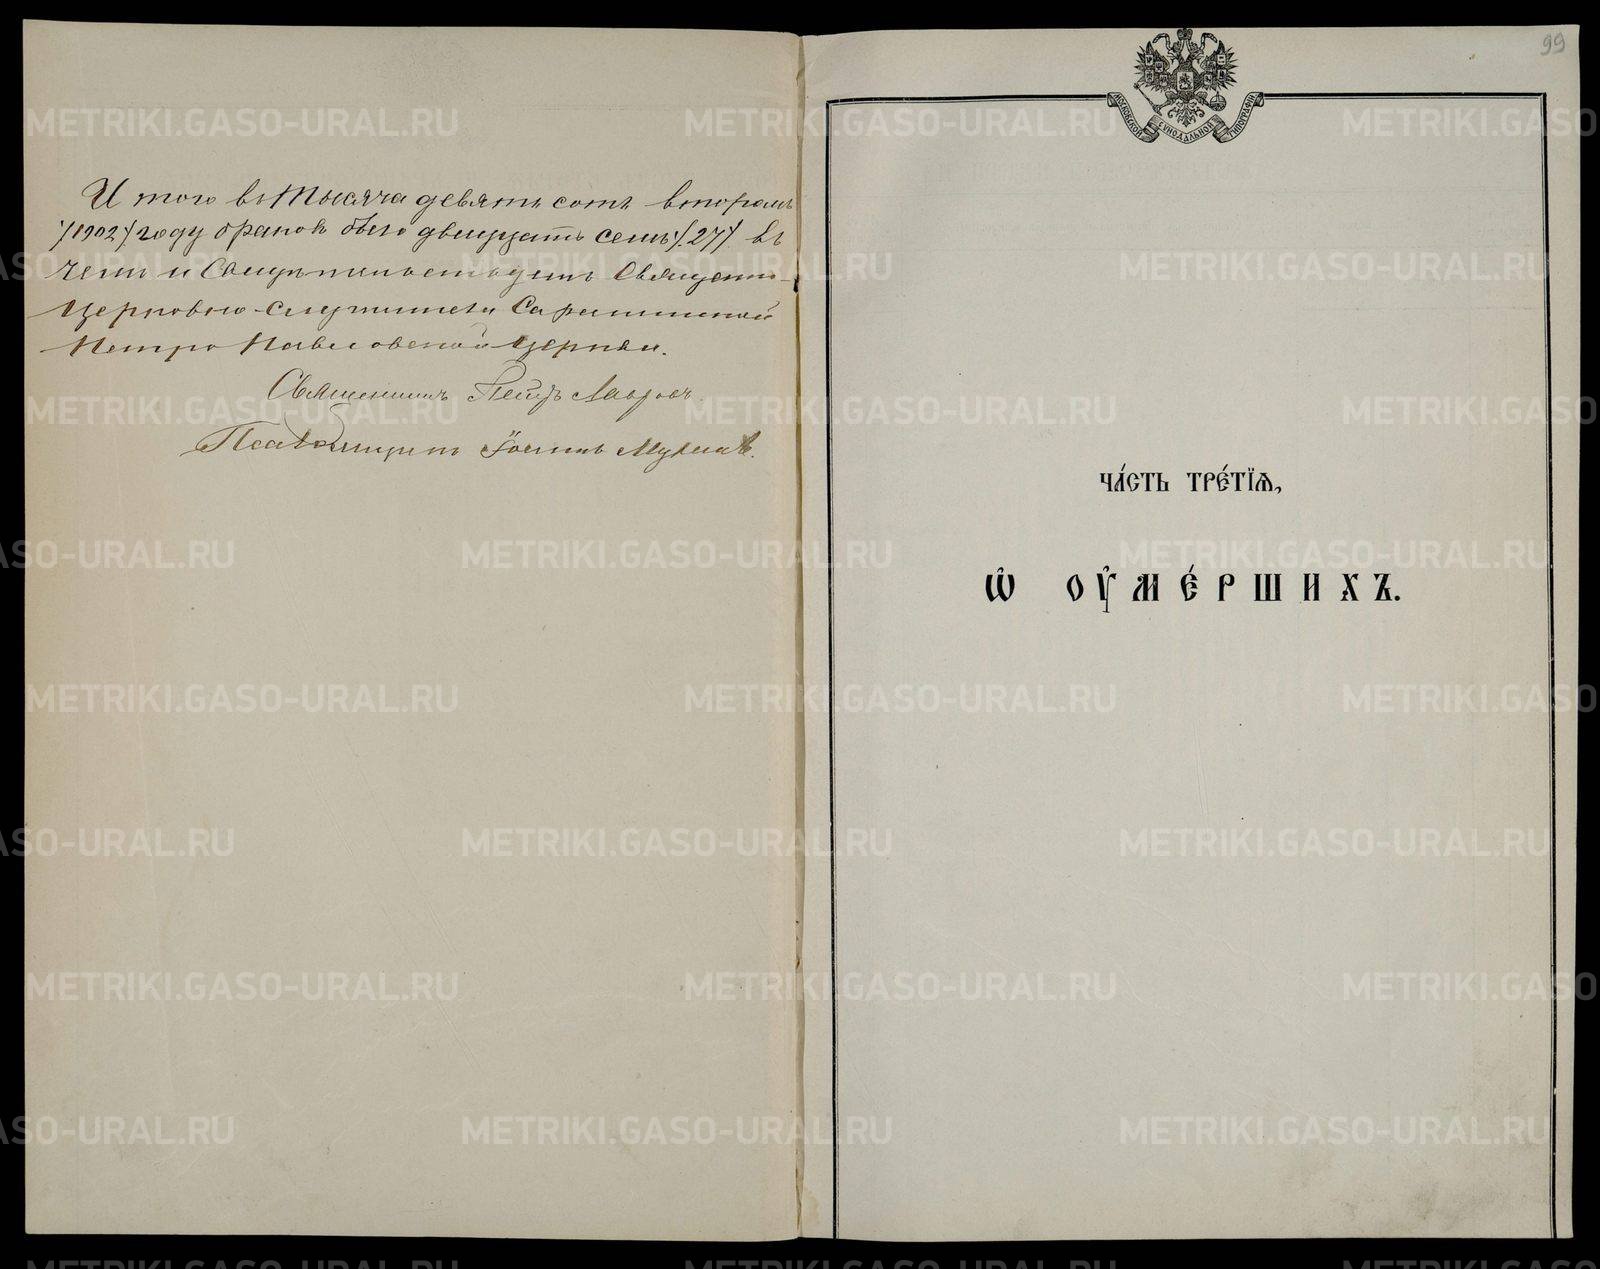 И того въ Тысяча девятьсотъ второмъ
/1902/ году браковъ было двадцать семь /27/. въ
чемъ и Свидѣтельствуемъ Священно-
церковно-служители Сарапинской
Петро Павловской церкви.
Священникъ Петръ Лавровъ
Псаломщикъ Іоаннъ
99
МОСКОВСКОЙ СУНОДАЛЬНОЙ ТИПОГРАФІИ
ЧА́СТЬ ТРЕ́ТЇѦ,
Ѡ҆ ОУ҆МЕ́РШИХЪ.
METRIKI.GASO-URAL.RU